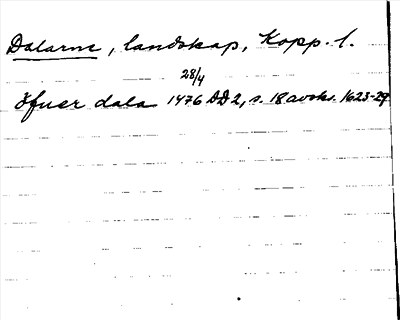 Dalarne, landskap, Kopp. l.
28/4
öfuer dala 1476 DD 2, s. 18 avskr. 1623-29